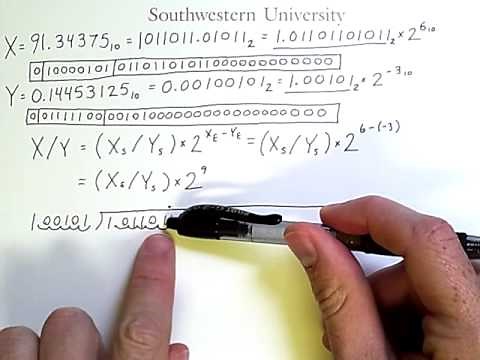 Southwestern University
X = 91.34375₁₀ = 1011011.01011₂ = 1.01101101011₂ * 2^6₁₀
0 10000101 01101101011000000000000
Y = 0.14453125₁₀ = 0.00100101₂ = 1.00101₂ * 2^-3₁₀
0 01111100 00101000000000000000000
X/Y = (Xₛ/Yₛ) * 2^(X_E - Y_E) = (Xₛ/Yₛ) * 2^(6-(-3))
= (Xₛ/Yₛ) * 2^9
100101 ) 101101